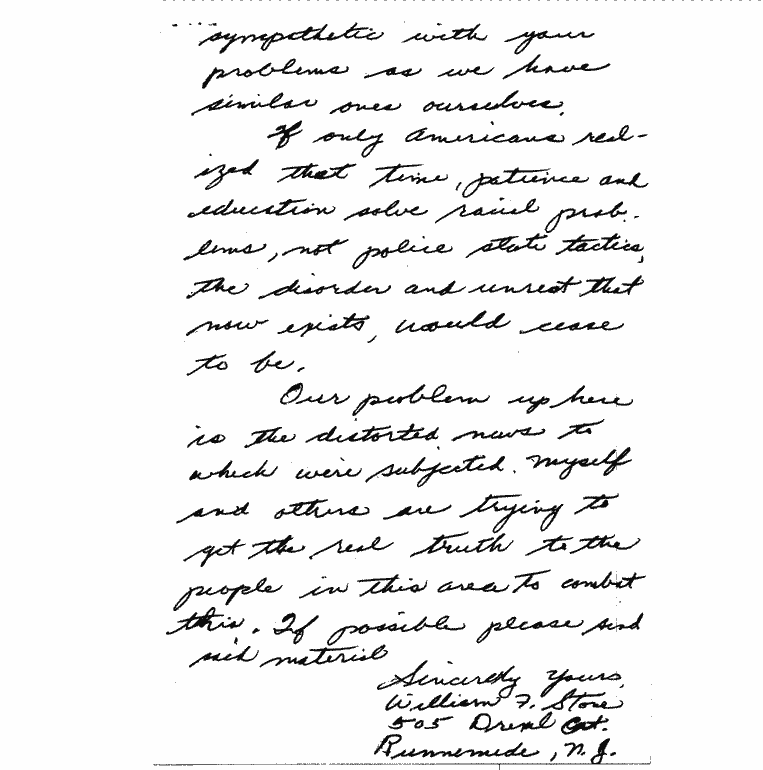 sympathetic with your
problems as we have
similar ones ourselves.
If only Americans real-
ized that time, patience and
education solve racial prob-
lems, not police state tactics,
the disorder and unrest that
now exists, would cease
to be.
Our problem up here
is the distorted news to
which were subjected. Myself
and others are trying to
get the real truth to the
people in this area to combat
this. If possible please send
said material
Sincerely Yours,
William F. Stone
505 Drexel
Runnemede, N.J.